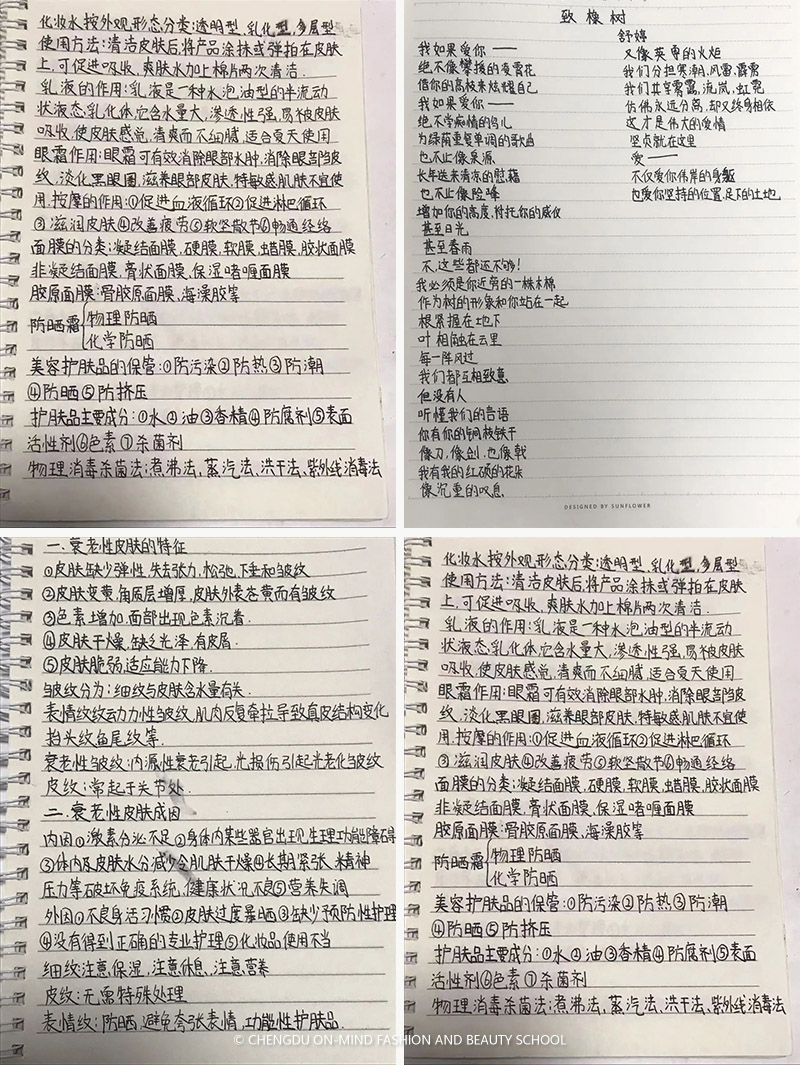 化妆水按外观形态分类:透明型,乳化型,多层型
使用方法:清洁皮肤后,将产品涂抹或弹拍在皮肤
上,可促进吸收,爽肤水加上棉片两次清洁.
乳液的作用:乳液是一种水泡油型的半流动
状液态乳化体,它含水量大,渗透性强,易被皮肤
吸收,使皮肤感觉,清爽而不细腻,适合夏天使用
眼霜作用:眼霜可有效消除眼部水肿,消除眼部皱
纹,淡化黑眼圈,滋养眼部皮肤,特敏感肌肤不宜使
用.按摩的作用:①促进血液循环②促进淋巴循环
③滋润皮肤④改善疲劳⑤软坚散节⑥畅通经络
面膜的分类:凝结面膜,硬膜,软膜,蜡膜,胶状面膜
非凝结面膜,膏状面膜,保湿啫喱面膜
胶原面膜:骨胶原面膜、海藻胶等
防晒霜{物理防晒
化学防晒
美容护肤品的保管:①防污染②防热③防潮
④防晒⑤防挤压
护肤品主要成分:①水②油③香精④防腐剂⑤表面
活性剂⑥色素⑦杀菌剂
物理消毒杀菌法:煮沸法,蒸汽法、洪干法、紫外线消毒法
致橡树
舒婷
我如果爱你——
绝不像攀援的凌霄花
借你的高枝来炫耀自己
我如果爱你——
绝不学痴情的鸟儿
为绿荫重复单调的歌曲
也不止像泉源
长年送来清凉的慰藉
也不止像险峰
增加你的高度,衬托你的威仪
甚至日光
甚至春雨
不,这些都还不够!
我必须是你近旁的一株木棉
作为树的形象和你站在一起
根,紧握在地下
叶,相融在云里
每一阵风过
我们都互相致意
但没有人
听懂我们的言语
你有你的铜枝铁干
像刀,像剑,也像戟
我有我的红硕的花朵
像沉重的叹息
又像英勇的火炬
我们分担寒潮、风雷、霹雳
我们共享雾霭、流岚、虹霓
仿佛永远分离,却又终身相依
这才是伟大的爱情
坚贞就在这里
爱——
不仅爱你伟岸的身躯
也爱你坚持的位置,足下的土地
DESIGNED BY SUNFLOWER
一.衰老性皮肤的特征
①皮肤缺少弹性,失去张力,松弛,下垂和皱纹
②皮肤变黄,角质层增厚,皮肤外表苍黄而有皱纹
③色素增加,面部出现色素沉着.
④皮肤干燥,缺乏光泽,有皮屑.
⑤皮肤脆弱,适应能力下降.
皱纹分为:细纹与皮肤含水量有关.
表情纹纹动力力性皱纹,肌肉反复牵拉导致真皮结构变化
抬头纹鱼尾纹等.
衰老性皱纹:内源性衰老引起,光损伤引起光老化皱纹
皮纹:常起于关节处.
二.衰老性皮肤成因
内因①激素分泌不足②身体内某些器官出现生理功能障碍等
③体内及皮肤水分减少令肌肤干燥④长期紧张、精神
压力等破坏免疫系统,健康状况不良⑤营养失调
外因①不良身活习惯②皮肤过度暴晒③缺少预防性护理
④没有得到正确的专业护理⑤化妆品使用不当
细纹:注意保湿,注意休息,注意营养
皮纹:无需特殊处理
表情纹:防晒,避免夸张表情,功能性护肤品.
化妆水按外观形态分类:透明型,乳化型,多层型
使用方法:清洁皮肤后,将产品涂抹或弹拍在皮肤
上,可促进吸收,爽肤水加上棉片两次清洁.
乳液的作用:乳液是一种水泡油型的半流动
状液态乳化体,它含水量大,渗透性强,易被皮肤
吸收,使皮肤感觉,清爽而不细腻,适合夏天使用
眼霜作用:眼霜可有效消除眼部水肿,消除眼部皱
纹,淡化黑眼圈,滋养眼部皮肤,特敏感肌肤不宜使
用.按摩的作用:①促进血液循环②促进淋巴循环
③滋润皮肤④改善疲劳⑤软坚散节⑥畅通经络
面膜的分类:凝结面膜,硬膜,软膜,蜡膜,胶状面膜
非凝结面膜,膏状面膜,保湿啫喱面膜
胶原面膜:骨胶原面膜、海藻胶等
防晒霜{物理防晒
化学防晒
美容护肤品的保管:①防污染②防热③防潮
④防晒⑤防挤压
护肤品主要成分:①水②油③香精④防腐剂⑤表面
活性剂⑥色素⑦杀菌剂
物理消毒杀菌法:煮沸法,蒸汽法、洪干法、紫外线消毒法
© CHENGDU ON-MIND FASHION AND BEAUTY SCHOOL